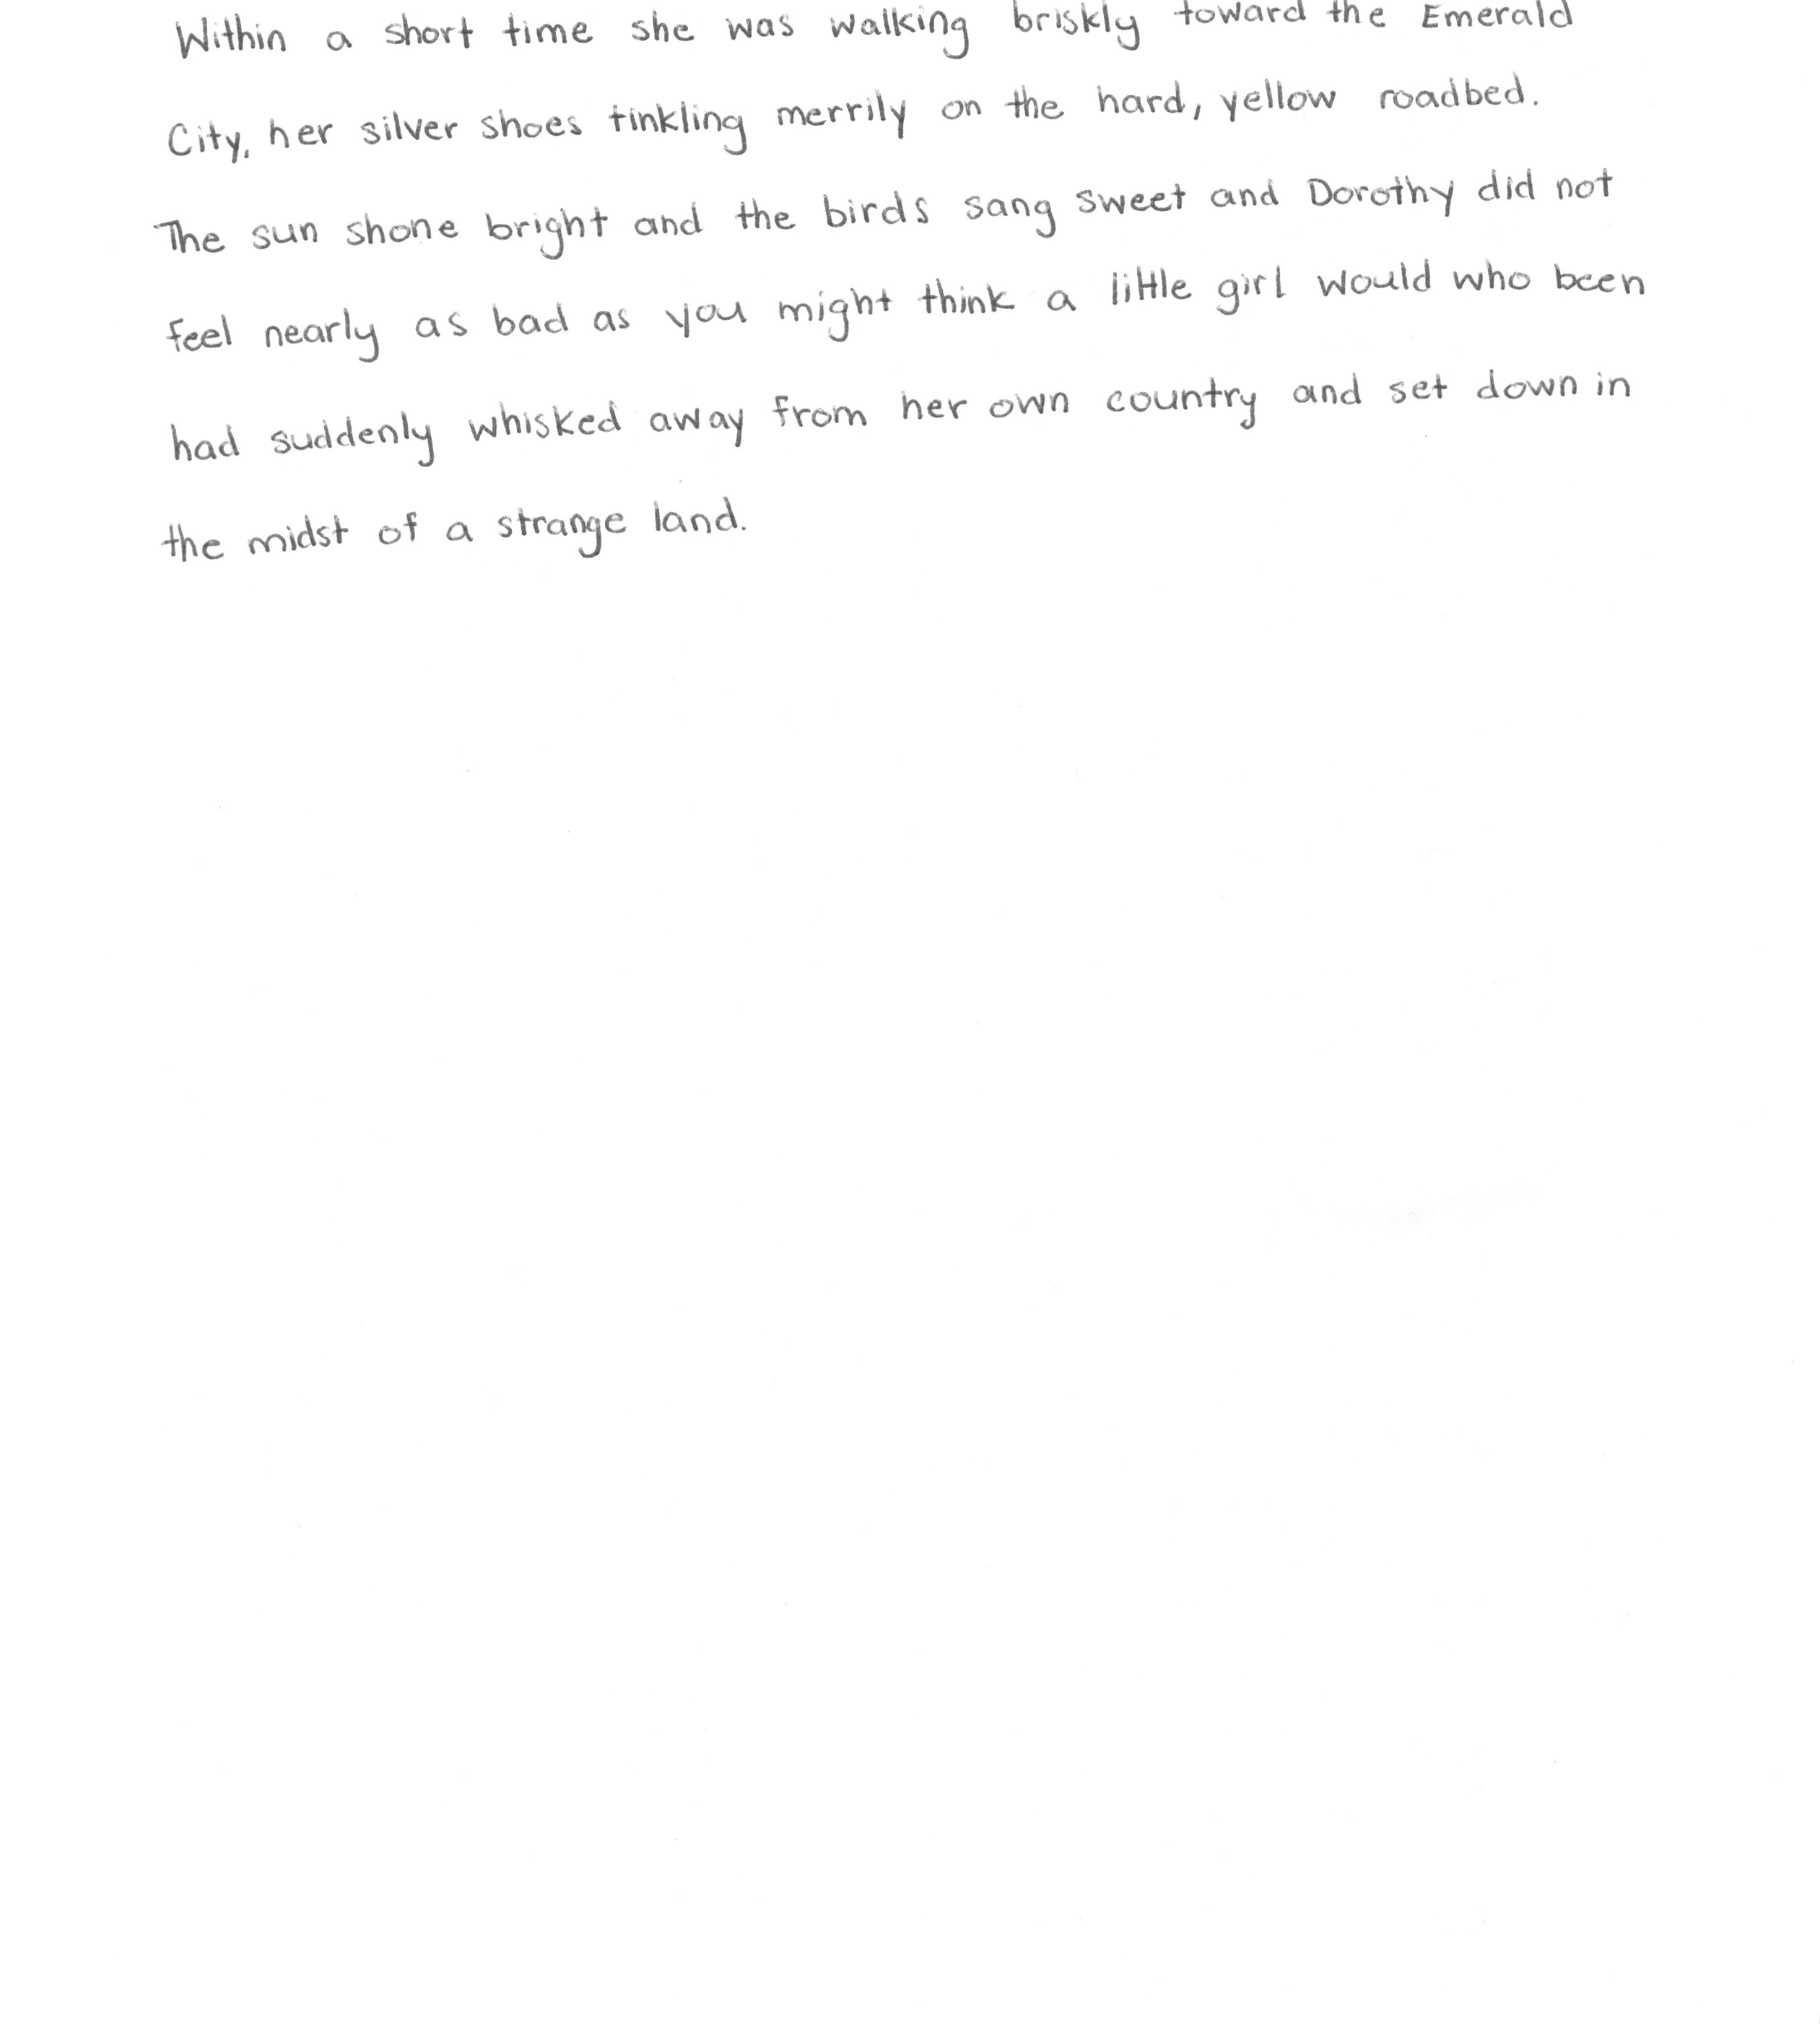 Within a short time she was walking briskly toward the Emerald
City, her silver shoes tinkling merrily on the hard, yellow roadbed.
The sun shone bright and the birds sang sweet and Dorothy did not
feel nearly as bad as you might think a little girl would who been
had suddenly whisked away from her own country and set down in
the midst of a strange land.